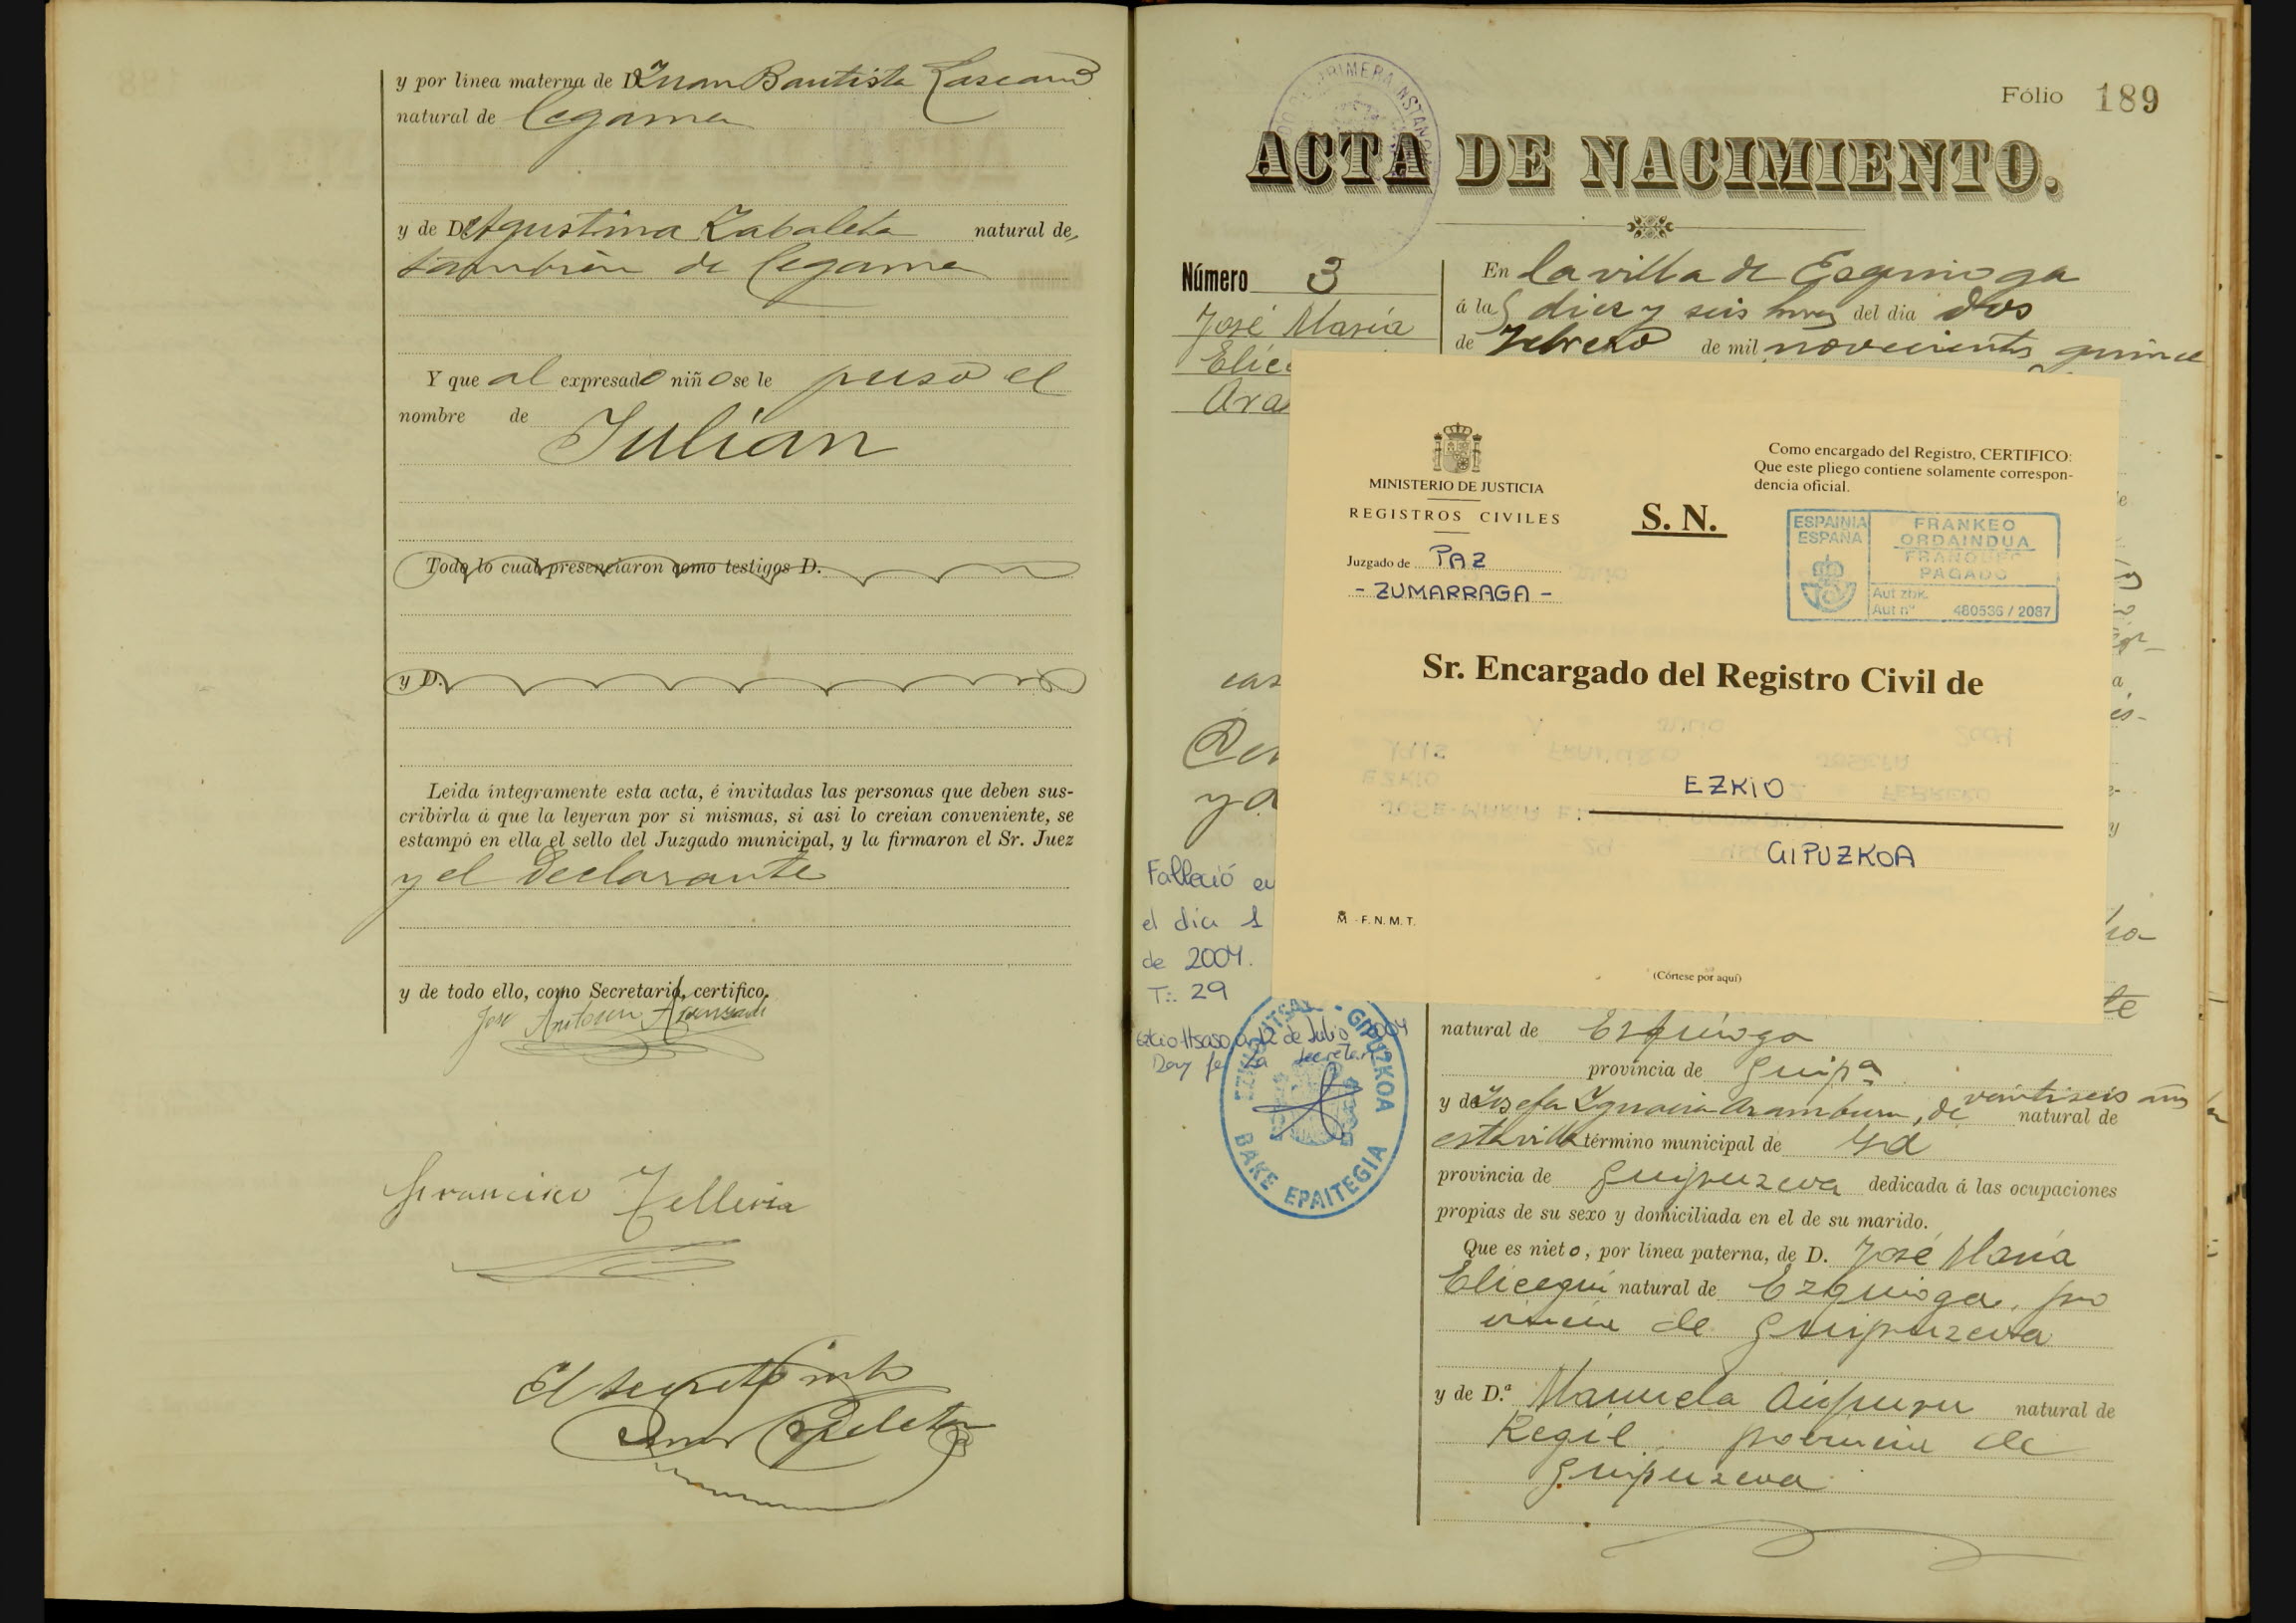 y por línea materna de D. Juan Bautista Lascano
natural de Cegama
y de D.ª Agustina Zabaleta natural de
tambien de Cegama
Y que al expresado niño se le puso el
nombre de
Julian
Todo lo cual presenciaron como testigos D.
y D.
Leida íntegramente esta acta, é invitadas las personas que deben sus-
cribirla á que la leyeran por si mismas, si asi lo creian conveniente, se
estampó en ella el sello del Juzgado municipal, y la firmaron el Sr. Juez
y el declarante
y de todo ello, como Secretario, certifico.
Francisco Telleria
Fólio 189
ACTA DE NACIMIENTO.
Número 3
José María
Elice
Ara
En la villa de Esquioga
á las diez y seis horas del dia dos
de Febrero de mil novecientos quince
MINISTERIO DE JUSTICIA
REGISTROS CIVILES
Juzgado de PAZ
- ZUMARRAGA -
S. N.
Como encargado del Registro, CERTIFICO:
Que este pliego contiene solamente correspon-
dencia oficial.
ESPAINIA
ESPAÑA
FRANKEO
ORDAINDUA
FRANQUEO
PAGADO
Aut zbk.
Aut nº 480536 / 2087
Sr. Encargado del Registro Civil de
EZKIO
GIPUZKOA
F. N. M. T.
(Córtese por aquí)
Falleció en
el dia 1
de 2004.
T: 29
Ezkio-Itsaso a 12 de Julio 2004
Doy fe La Secretaria
EZKIO-ITSASO - GIPUZKOA
BAKE EPAITEGIA
natural de Ezquioga
provincia de Guipª
y de Josefa Ygnacia Aramburu, de veintiseis años natural de
esta villa término municipal de id
provincia de Guipuzcoa dedicada á las ocupaciones
propias de su sexo y domiciliada en el de su marido.
Que es nieto, por línea paterna, de D. José María
Elicegui natural de Ezquioga, pro
vincia de Guipuzcoa
y de D.ª Manuela Aizpuru natural de
Regil provincia de
Guipuzcoa